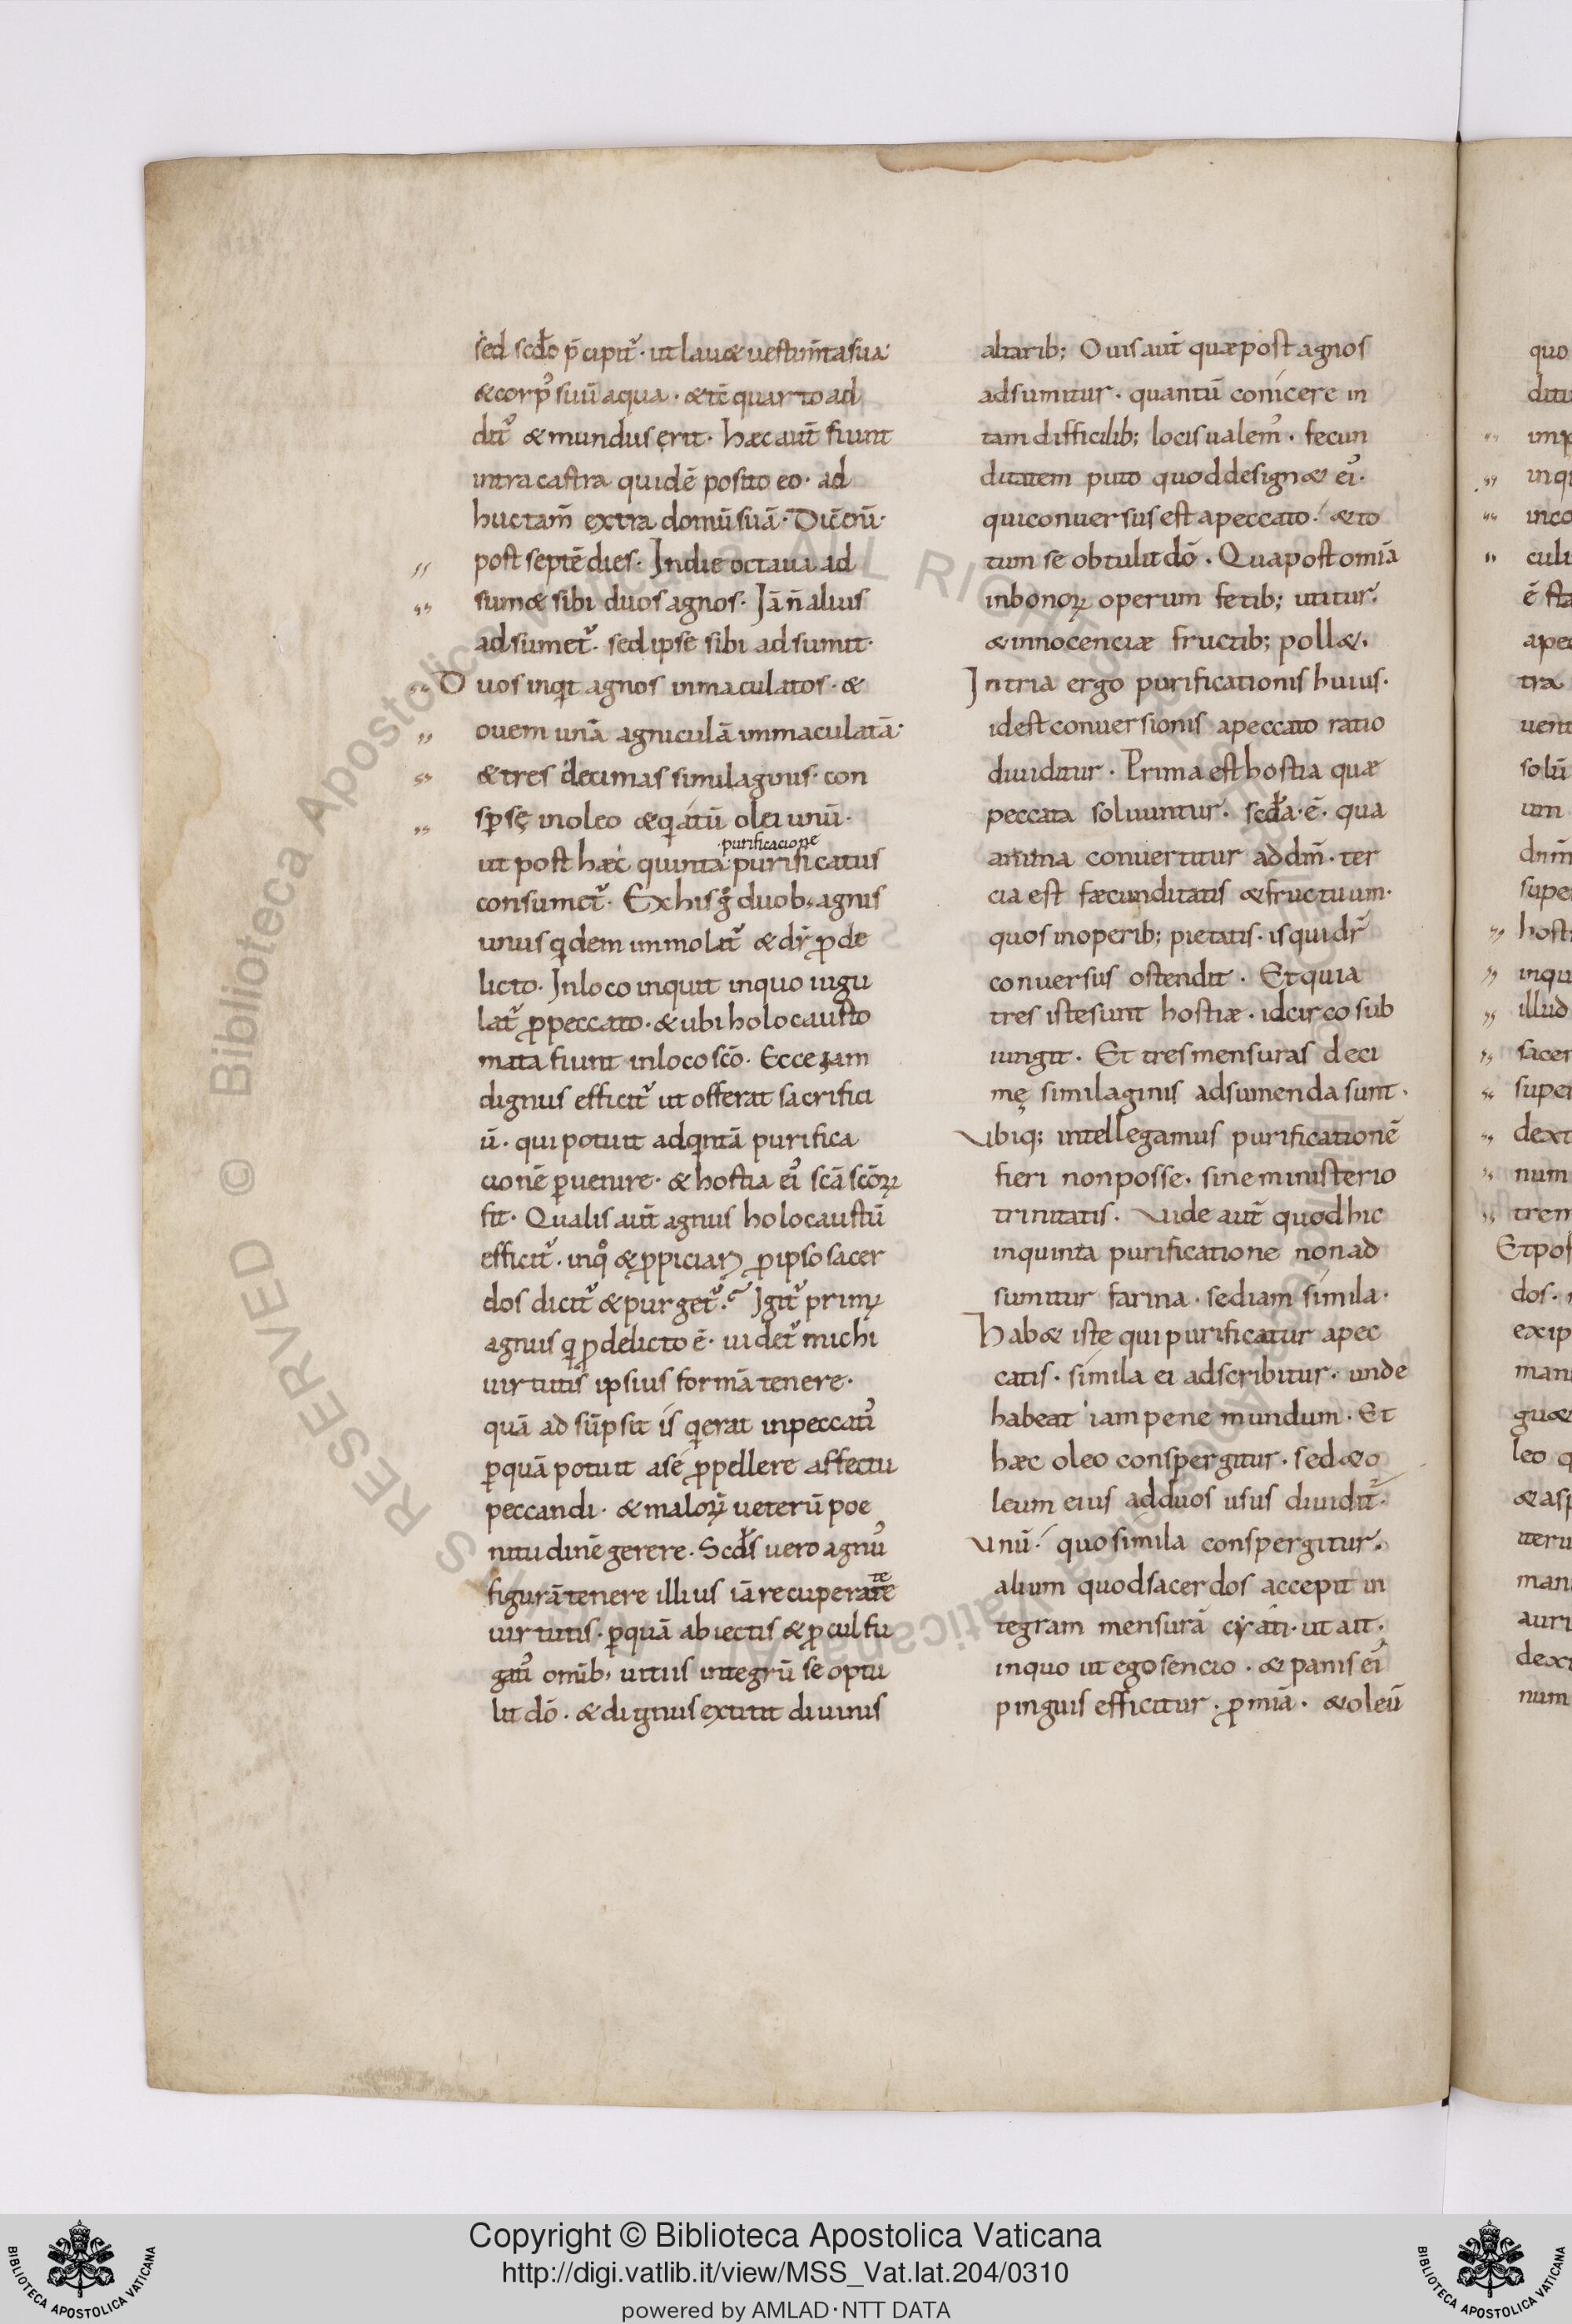 sed scdo p̄cipit᷒· ut lauet uestim̄ta sua
&corp᷒ suū aqua · & tc̄ quarto ad
dit᷒ & mundus erit · haec aut̄ fiunt
intra castra quidē posito eo · ad
huc tam̄ extra domū suā · Dic̄ enī·
post septē dies · In die octaua ad
sum& sibi duos agnos · Iā n̄ alius
adsumet᷒ · sed ipse sibi adsumit·
Duos inqt agnos inmaculatos · &
ouem unā agniculā immaculatā·
& tres decimas similaginis · con
spsę in oleo & qiatū olei unū·
purificacione
ut post haec quinta purificatus
consumet᷒ · Ex his g̊ duob; agnis
unus qdem immolat᷒ & dr̄ ꝓ de
licto · In loco inquit in quo iugu
lat᷒ ꝓ peccato · & ubi holocausto
mata fiunt in loco scō · Ecce iam
dignus efficit᷒ ut offerat sacrifici
ū · qui potuit ad qntā purifica
cionē ꝑuenire · & hostia ei᷒ scā scōꝝ
fit · Qualis aut̄ agnus holocaustū
efficit᷒ · in qo & ꝓpiciaꝝ ꝓ ipso sacer
dos dicit᷒ & purget᷒ · Igit᷒ prim᷒
agnus q ꝓ delicto ē · uidet᷒ michi
uirtutis ipsius formā tenere·
quā adsūpsit is q erat in peccati᷒
ꝑ quā potuit a se ꝓpellere affectu
peccandi · & maloꝝ ueterū poe
nitudinē gerere · Scds uero agnu᷒
te
figurā tenere illius iā recuperate
uirtutis · ꝑ quā abiectis & ꝓcul fu
gati᷒ omīb; uitiis integrū se optu
lit dō · & dignus extitit diuinis
altarib; Ouis aut̄ quae post agnos
adsumitur · quantū conicere in
tam difficilib; locis ualem᷒ · fecun
ditatem puto quod design& ei᷒·
qui conuersus est a peccato · & to
tum se obtulit dō · Qua post omīa
in bonoꝝ operum fetib; utitur·
& innocenciae fructib; poll&·
In tria ergo purificationis huius·
id est conuersionis a peccato ratio
diuiditur · Prima est hostia quae
peccata soluuntur · scda · ē · qua
anima conuertitur ad dm̄ · ter
cia est faecunditatis & fructuum·
quos in operib; pietatis · is qui dr̄
conuersus ostendit · Et quia
tres iste sunt hostiae · idcirco sub
iungit · Et tres mensuras deci
mę similaginis adsumenda sunt ·
Vbiq; intellegamus purificationē
fieri non posse · sine ministerio
trinitatis · Vide aut̄ quod hic
in quinta purificatione non ad
sumitur farina · sed iam simila·
Hab& iste qui purificatur a pec
catis · simila ei adscribitur · unde
habeat iam pene mundum · Et
haec oleo conspergitur · sed & o
leum eius ad duos usus diuidit᷒·
Vnū · quo simila conspergitur·
alium quod sacerdos accepit in
tegram mensurā cyati · ut ait·
in quo ut ego sencio · & panis ei᷒
pinguis efficitur · ꝓ mīa · & oleū
Copyright © Biblioteca Apostolica Vaticana
http://digi.vatlib.it/view/MSS_Vat.lat.204/0310
powered by AMLAD·NTT DATA